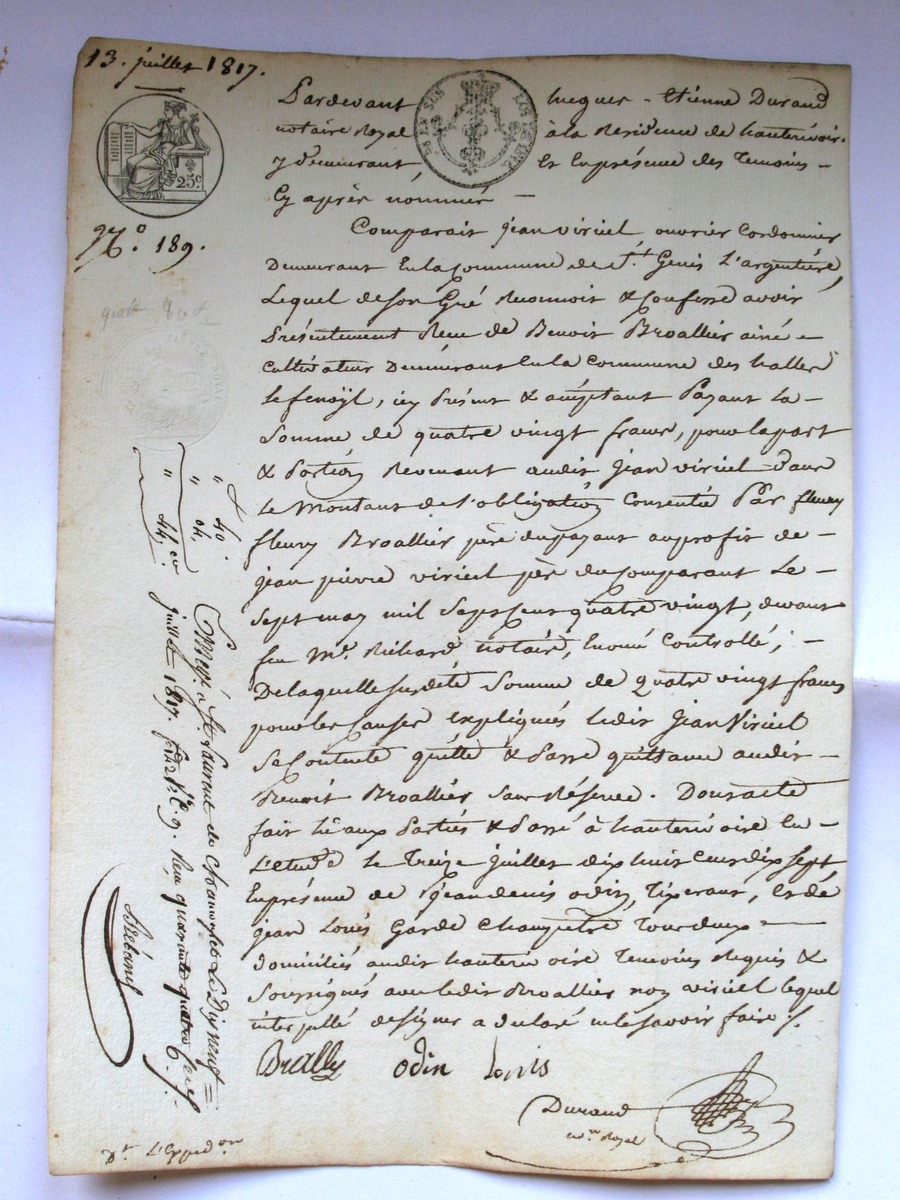 13. juillet 1817.
Pardevant hugues-Etienne Durand
notaire Royal à la Residence de hauterivoir.
y demeurant, Et Enprésence des Temoins
Cy après nommés
25c
No. 189.
Comparait jean viriel ouvrier Cordonnier
Demeurant Enla Commune de St. Genis L'argentiére,
Lequel deson Gré Reconnoit & Confesse avoir
Présentement Reçu de Benoit Broallier ainé
Cultivateur Demeurant Enla Commune des halles
lefenoÿl, icy Présent & acceptant Payant La
Somme de quatre vingt francs, pour lapart
& Portion Revenant audit jean viriel dans
Le Montant de l'obligation Consentie Par fleury
fleury Broallier père dupayant auprofit de
jean pierre viriel père duComparant Le
Sept may mil Septcent quatre vingt, devant
feu Me. Richard notaire, Enoué Controllé;
Delaquelle susdite Somme de quatre vingt francs
pour les Causes Expliquées ledit jean Viriel
Se Contente quitte & Passe quittance audit
Benoit Broallier Sans Réserve. Dont acte
fait lû aux Parties & Passé à hauterivoire En
L'etude le Treize juillet dix huit Cent dix Sept
Enprésence de jean denis odin, Tixerant, Et de
jean Louis Garde Champêtre Tous deux
Domiciliés audit hauterivoire Temoins Requis &
Soussignés avec ledit Broallier non viriel lequel
interpellé designer a declaré nelesavoir faire ./.
Brally odin Louis
Durand
nre Royal
" 40.
" 04.
" 44. cs
Enregé. à St. Laurent de Chamousset Le Dix neuf
juillet 1817. Reçu quarante quatre
Dt L'Expedon